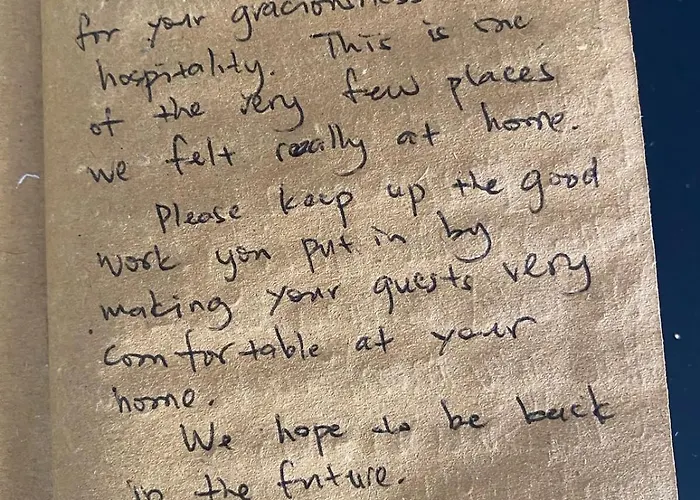 for your graciousness
hospitality. This is one
of the very few places
we felt really at home.
Please keep up the good
work you put in by
making your guests very
comfortable at your
home.
We hope to be back
in the future.